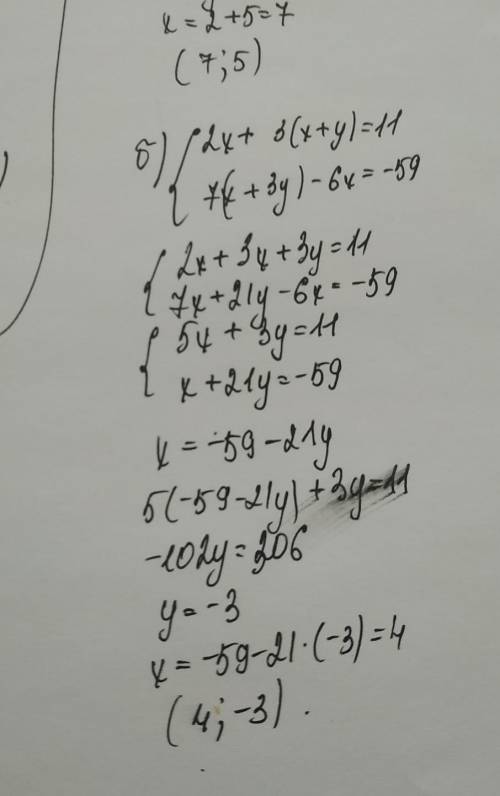 x = 2 + 5 = 7
(7; 5)
б) { 2x + 3(x + y) = 11
7(x + 3y) - 6x = -59
{ 2x + 3x + 3y = 11
7x + 21y - 6x = -59
{ 5x + 3y = 11
x + 21y = -59
x = -59 - 21y
5(-59 - 21y) + 3y = 11
-102y = 306
y = -3
x = -59 - 21 · (-3) = 4
(4; -3) .